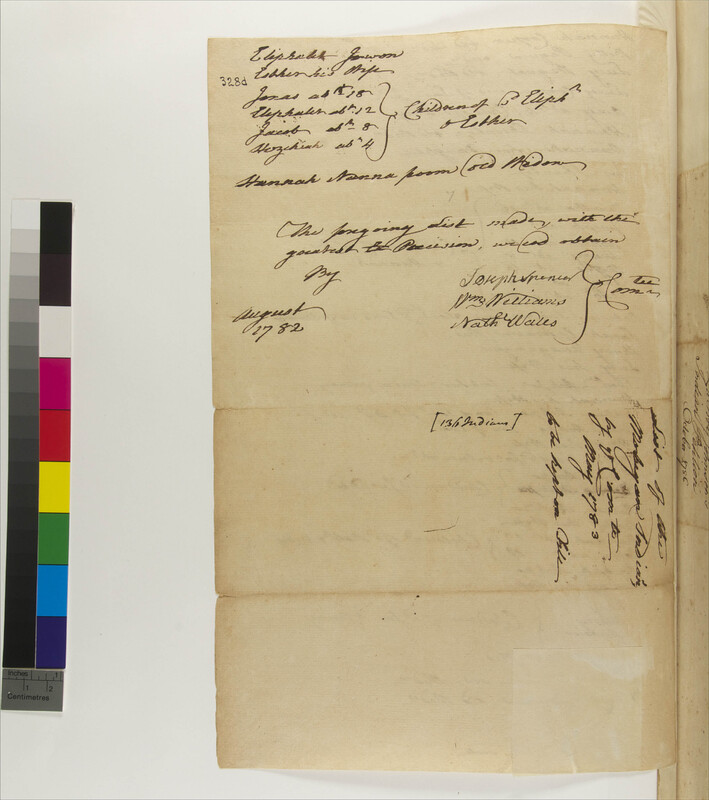 Eliphalet Jowon
Esther his Wife
328d
Jonas abt 18
Eliphalet abt 12
Jacob abt 8
Hezekiah abt 4
Children of Sd Eliph
& Esther
Hannah Nanna poom Old Widow
The foregoing List made, with the
greatest Precision, we cod obtain
By
Joseph Spencer
Wm Williams
Nathl Wales
Comtee
August
1782
[136 Indians]
List of the
Mohegan Indians
by ye Comtee
May 1783
to be kept on File
Indian
October 1786